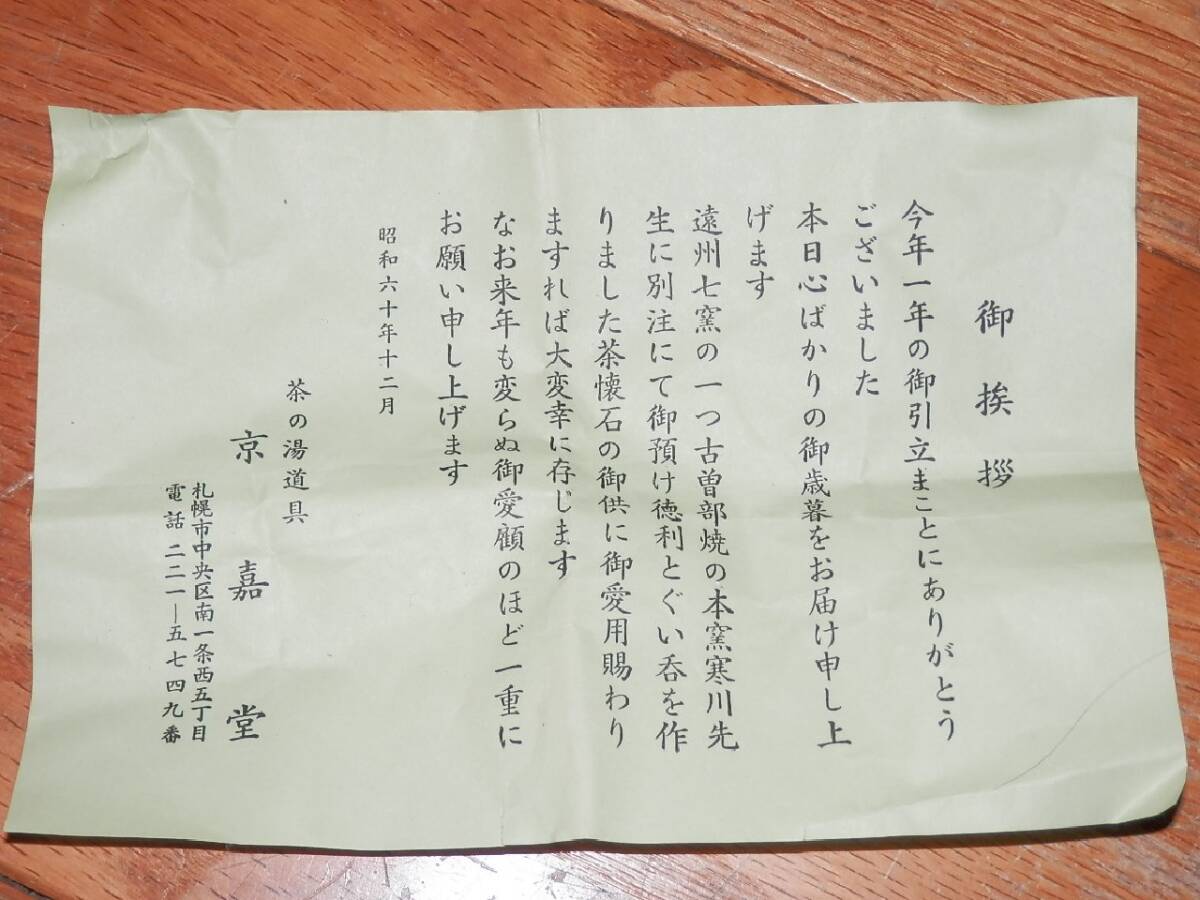 御挨拶
今年一年の御引立まことにありがとう
ございました
本日心ばかりの御歳暮をお届け申し上
げます
遠州七窯の一つ古曽部焼の本窯寒川先
生に別注にて御預け徳利とぐい呑を作
りました茶懐石の御供に御愛用賜わり
ますれば大変幸に存じます
なお来年も変らぬ御愛顧のほど一重に
お願い申し上げます
昭和六十年十二月
茶の湯道具
京嘉堂
札幌市中央区南一条西五丁目
電話二二一―五七四九番